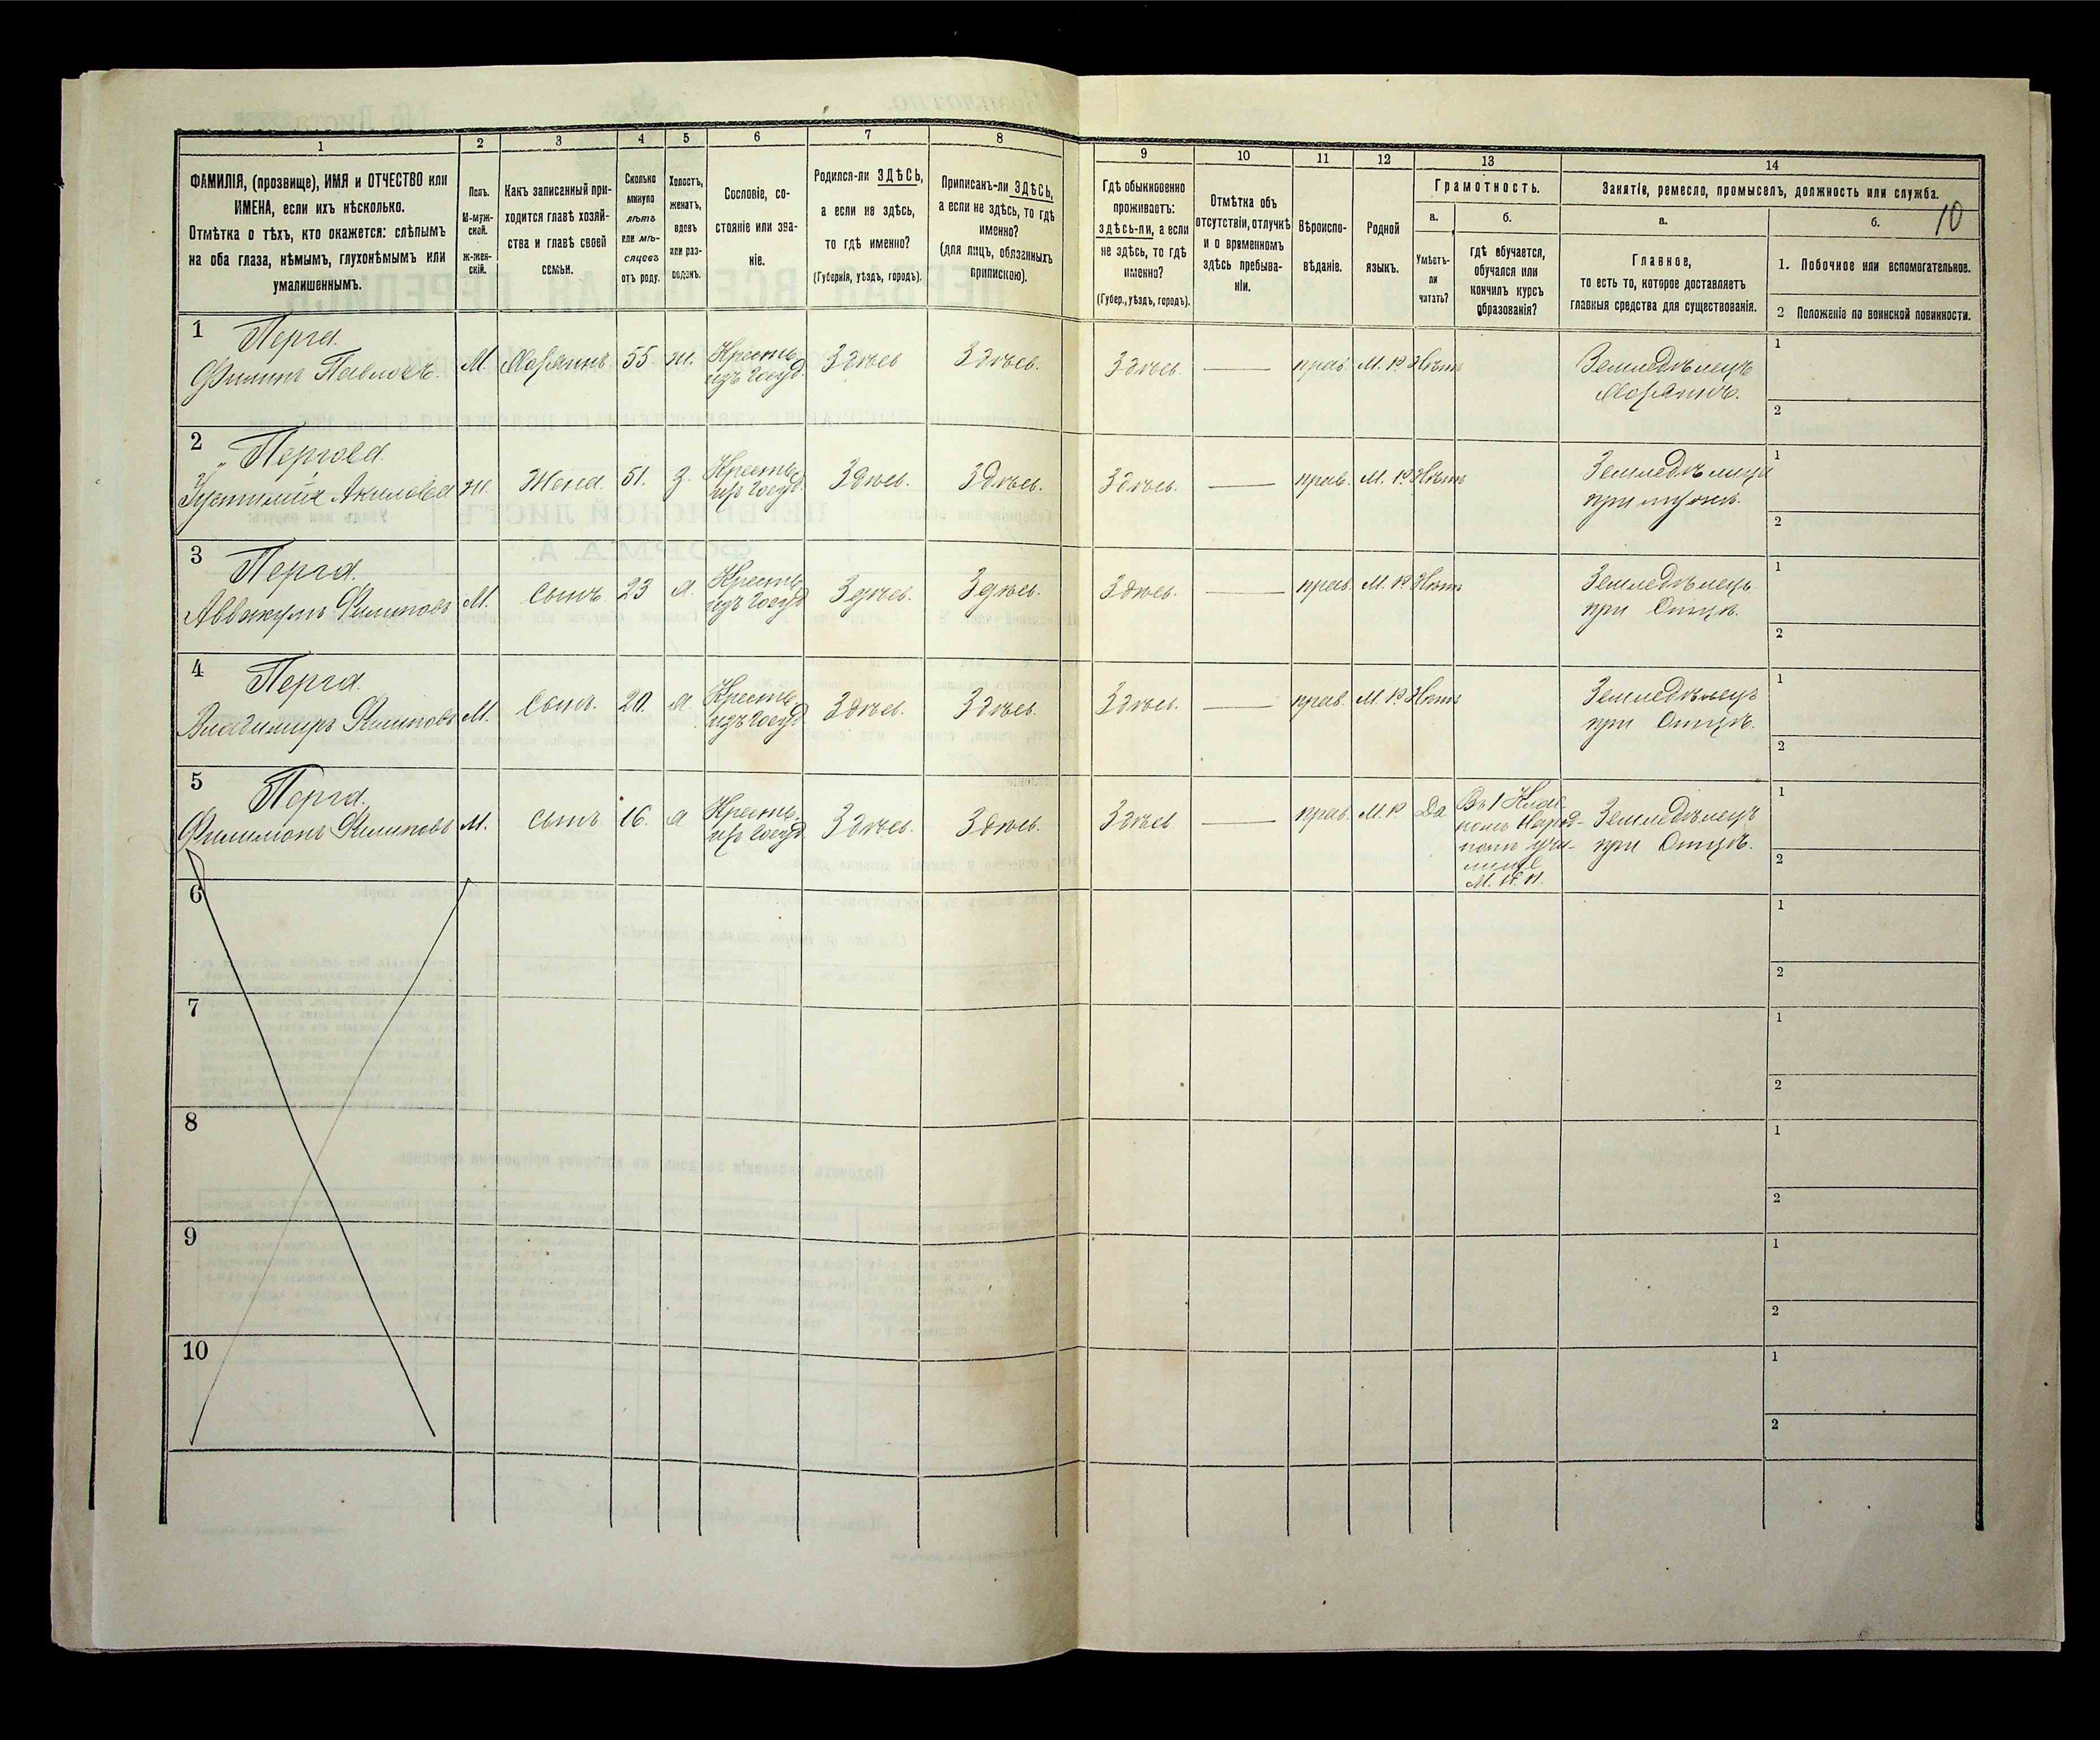 1
2
3
4
5
6
7
8
9
10
11
12
13
14
ФАМИЛІЯ, (прозвище), ИМЯ и ОТЧЕСТВО или
ИМЕНА, если ихъ нѣсколько.
Отмѣтка о тѣхъ, кто окажется: слѣпымъ
на оба глаза, нѣмымъ, глухонѣмымъ или
умалишеннымъ.
Полъ.
М-муж-
ской.
Ж-жен-
скій.
Какъ записанный при-
ходится главѣ хозяй-
ства и главѣ своей
семьи.
Сколько
минуло
лѣтъ
или мѣ-
сяцевъ
отъ роду.
Холостъ,
женатъ,
вдовъ
или раз-
веденъ.
Сословіе, со-
стояніе или зва-
ніе.
Родился-ли ЗДѢСЬ,
а если не здѣсь,
то гдѣ именно?
(Губернія, уѣздъ, городъ).
Приписанъ-ли ЗДѢСЬ,
а если не здѣсь, то гдѣ
именно?
(для лицъ, обязанныхъ
припискою).
Гдѣ обыкновенно
проживаетъ:
здѣсь-ли, а если
не здѣсь, то гдѣ
именно?
(Губер., уѣздъ, городъ).
Отмѣтка объ
отсутствіи, отлучкѣ
и о временномъ
здѣсь пребыва-
ніи.
Вѣроиспо-
вѣданіе.
Родной
языкъ.
Грамотность.
а.
Умѣетъ-
ли
читать?
б.
гдѣ обучается,
обучался или
кончилъ курсъ
образованія?
Занятіе, ремесло, промыселъ, должность или служба.
а.
Главное,
то есть то, которое доставляетъ
главныя средства для существованія.
б.
10
1. Побочное или вспомогательное.
2 Положеніе по воинской повинности.
1
Перга.
Филипъ Павловъ.
М.
Хозяинъ
55.
ж.
Кресть.
изъ Госуд.
Здѣсь
Здѣсь.
Здѣсь.
прав.
М. Р.
Нѣтъ
Земледѣлецъ
Хозяинъ.
1
2
2
Пергова
Устинія Акилова
Ж.
Жена
51.
З.
Кресть.
изъ Госуд.
Здѣсь.
Здѣсь.
Здѣсь.
прав.
М. Р.
Нѣтъ
Земледѣлица
при мужѣ.
1
2
3
Перга.
Аввакумъ Филиповъ
М.
Сынъ
23
х.
Кресть.
изъ Госуд
Здѣсь.
Здѣсь.
Здѣсь.
прав.
М. Р.
Нѣтъ
Земледѣлецъ
при Отцѣ.
1
2
4
Перга.
Владимиръ Филиповъ
М.
Сынъ.
20.
х.
Кресть.
изъ Госуд
Здѣсь.
Здѣсь.
Здѣсь.
прав.
М. Р.
Нѣтъ
Земледѣлецъ
при Отцѣ.
1
2
5
Перга.
Филимонъ Филиповъ
М.
сынъ
16.
х
Кресть.
изъ Госуд.
Здѣсь.
Здѣсь.
Здѣсь
прав.
М. Р.
Да
Въ 1 Клас
номъ Народ-
номъ учи-
лищѣ
М. Н. П.
Земледѣлецъ
при Отцѣ.
1
2
6
1
2
7
1
2
8
1
2
9
1
2
10
1
2